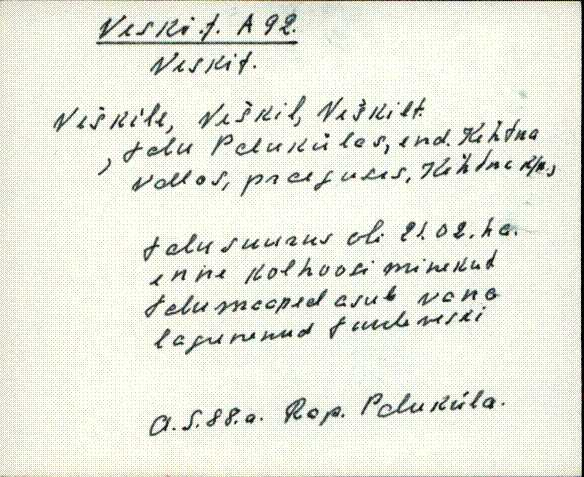 Veski t. A 92.
Veski t.
Veškile, Veškil, Veškilt.
, talu Palukülas, end. Kehtna
vallas, praeguses, Kehtna k/n.,
talu suurus oli 21.02. ha.
enne kolhoosi minekut
talu maapeal asub vana
lagunenud tuuleveski
A.S. 88.a. Rap. Paluküla.